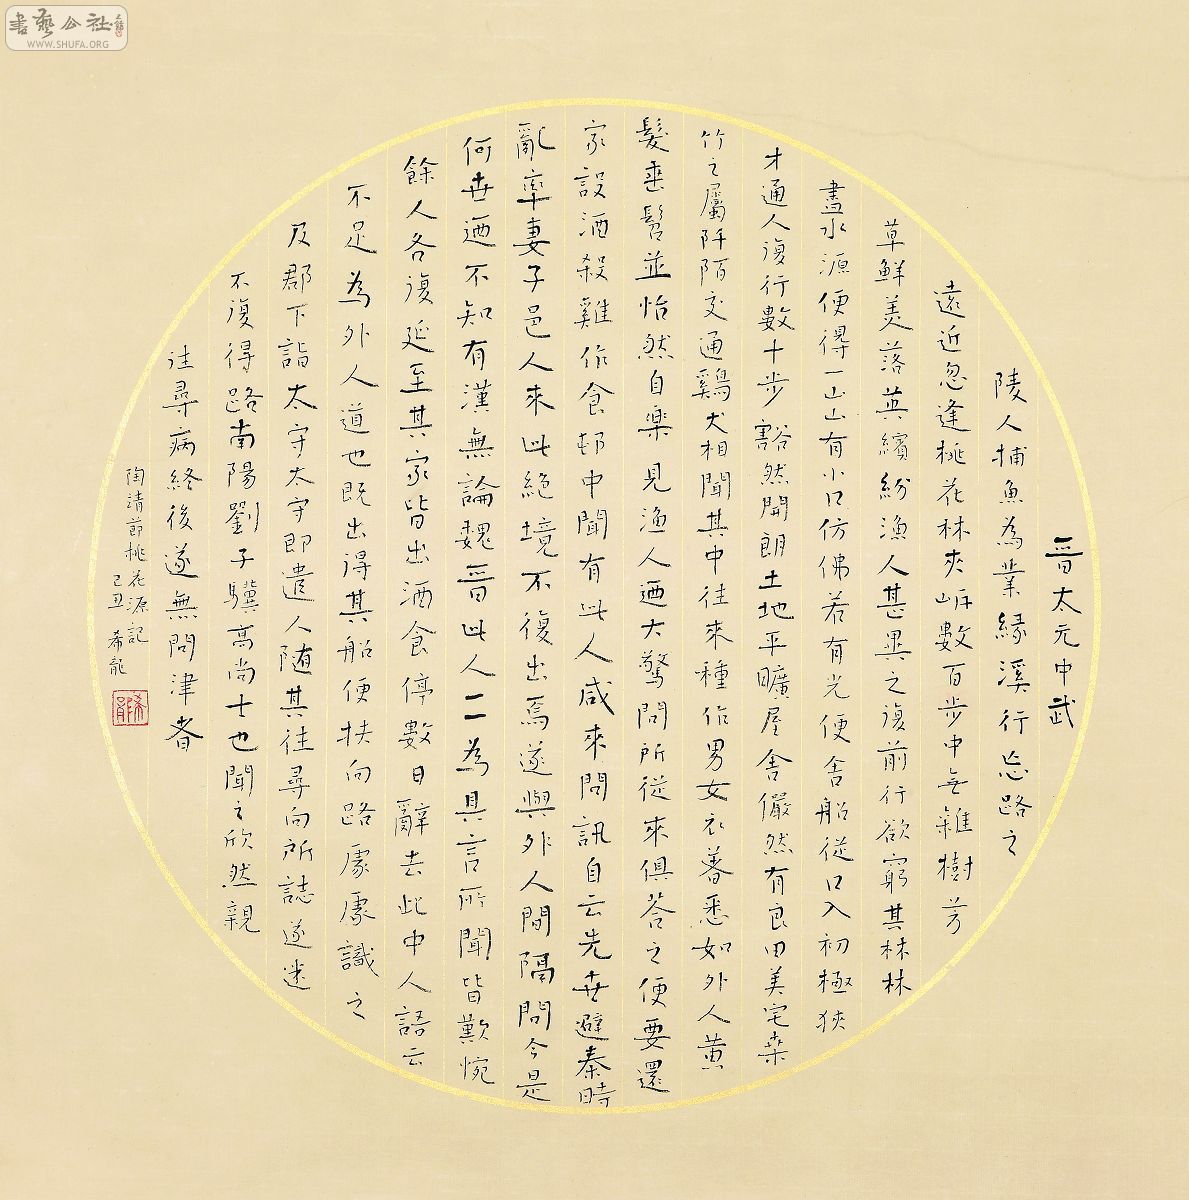 晉太元中武
陵人捕魚為業緣溪行忘路之
遠近忽逢桃花林夾岸數百步中無雜樹芳
草鮮美落英繽紛漁人甚異之復前行欲窮其林林
盡水源便得一山山有小口仿佛若有光便舍船從口入初極狹
才通人復行數十步豁然開朗土地平曠屋舍儼然有良田美宅桑
竹之屬阡陌交通鷄犬相聞其中往來種作男女衣著悉如外人黃
髮垂髫並怡然自樂見漁人迺大驚問所從來俱荅之便要還
家設酒殺雞作食邨中聞有此人咸來問訊自云先世避秦時
亂率妻子邑人來此絕境不復出焉遂與外人間隔問今是
何世迺不知有漢無論魏晉此人一一為具言所聞皆歎惋
餘人各復延至其家皆出酒食停數日辭去此中人語云
不足為外人道也既出得其船便扶向路處處識之
及郡下詣太守太守即遣人随其往尋向所誌遂迷
不復得路南陽劉子驥高尚士也聞之欣然親
往尋病終後遂無問津者
陶靖節桃花源記
己丑 希龍
書藝公社
WWW.SHUFA.ORG